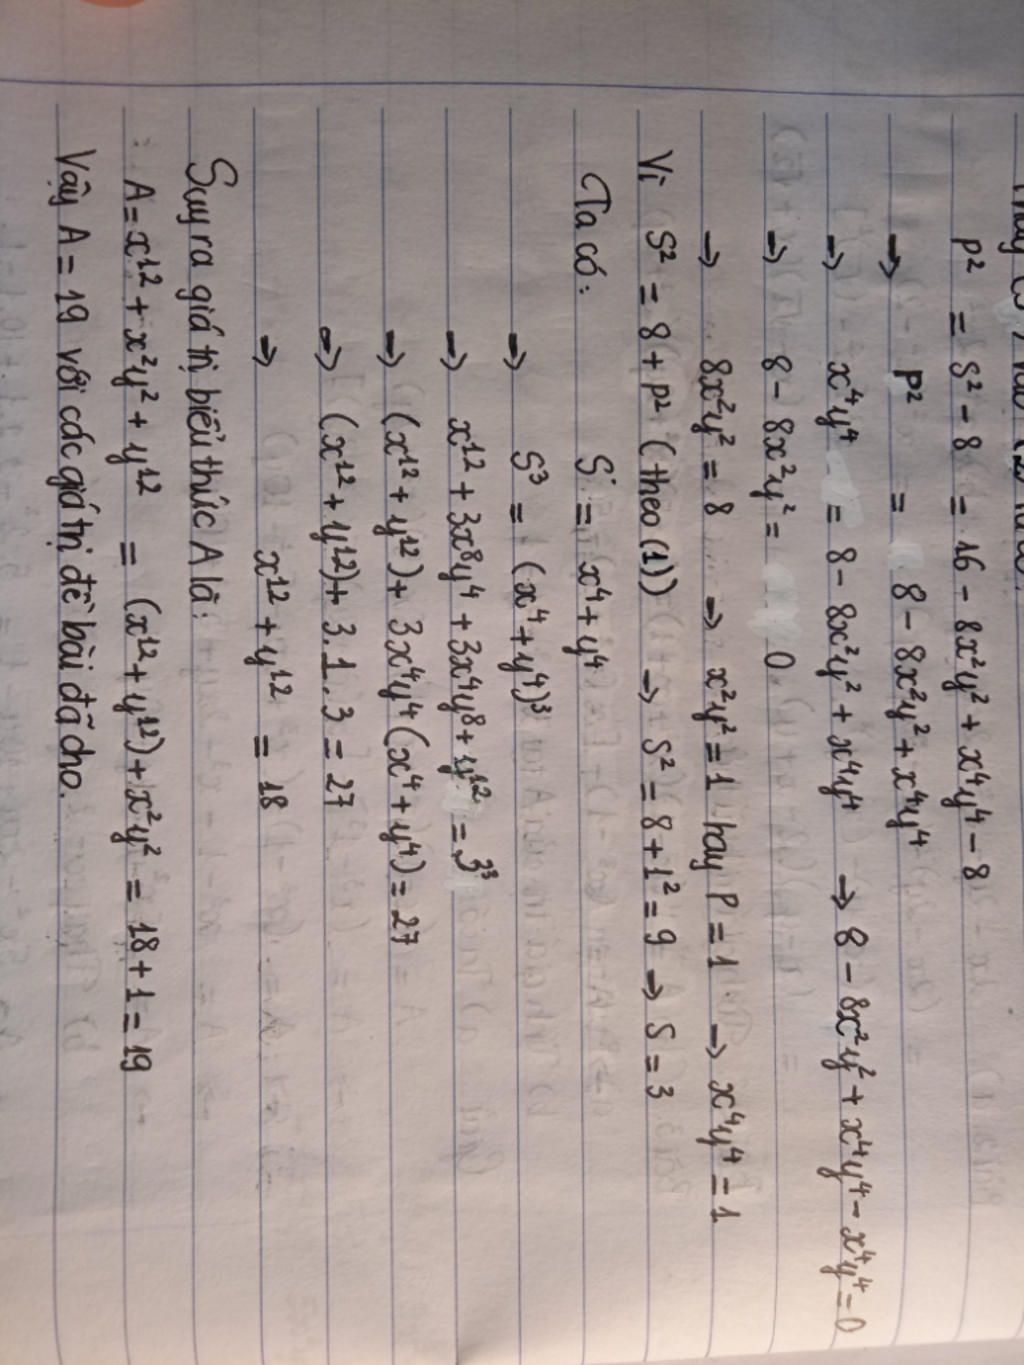 Thay (3) vào (2) ta được:
P² = S² - 8 = 16 - 8x²y² + x⁴y⁴ - 8
→ P² = 8 - 8x²y² + x⁴y⁴
→ x⁴y⁴ = 8 - 8x²y² + x⁴y⁴ → 8 - 8x²y² + x⁴y⁴ - x⁴y⁴ = 0
→ 8 - 8x²y² = 0
→ 8x²y² = 8 → x²y² = 1 hay P = 1 → x⁴y⁴ = 1
Vì S² = 8 + P² (theo (1)) → S² = 8 + 1² = 9 → S = 3
Ta có: S = x⁴ + y⁴
→ S³ = (x⁴ + y⁴)³
→ x¹² + 3x⁸y⁴ + 3x⁴y⁸ + y¹² = 3³
→ (x¹² + y¹²) + 3x⁴y⁴(x⁴ + y⁴) = 27
→ (x¹² + y¹²) + 3.1.3 = 27
→ x¹² + y¹² = 18
Suy ra giá trị biểu thức A là:
A = x¹² + x²y² + y¹² = (x¹² + y¹²) + x²y² = 18 + 1 = 19
Vậy A = 19 với các giá trị đề bài đã cho.